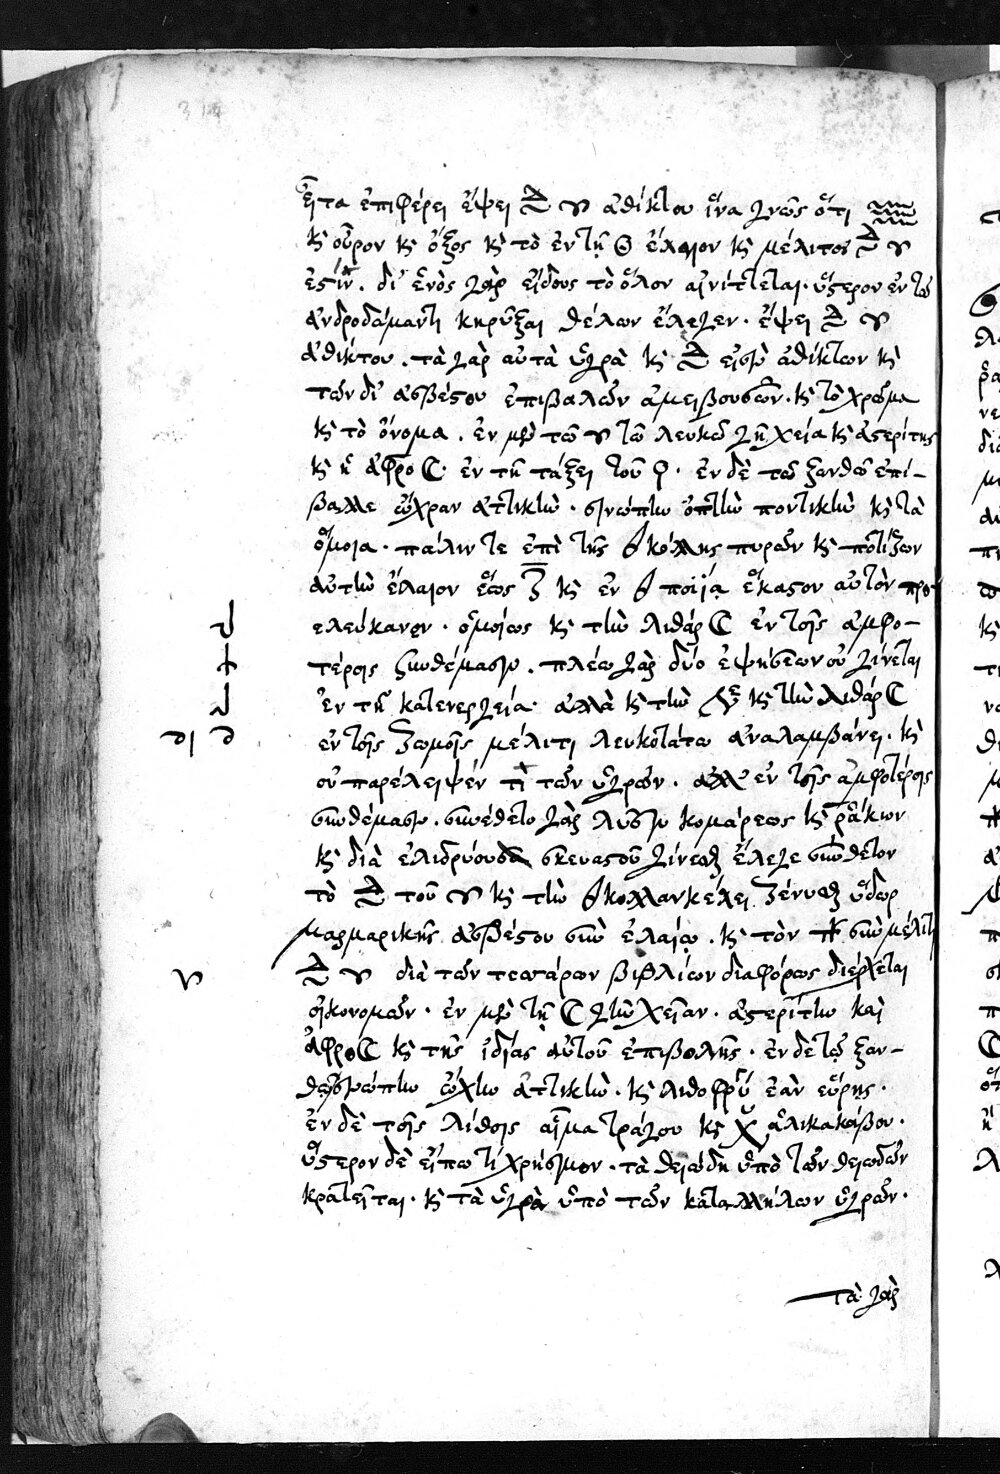 εἶτα ἐπιφέρει ἕψει ἀθίκτου ἵνα γνῶς ὅτι
κ οὖρον κ ὄξος κ τὸ ἐν τῇ ἔλαιον κ μέλιτος
ἐστίν. δι' ἑνὸς γὰρ εἴδους τὸ ὅλον αἰνίττεται. ὕστερον ἐν τῷ
ἀνδροδάμαντι κηρύξαι θέλων ἔλεγεν. ἕψει
ἀθίκτου. τὰ γὰρ αὐτὰ ὑγρὰ κ εἰσὶν ἀθίκτων κ
τῶν δι' ἀσβέστου ἐπιβαλὼν ἀμειβουσῶν. κ τὸ χρῶμα
κ τὸ ὄνομα. ἐν μὲν τῷ λευκῷ γῆ χεία κ ἀστερίτης
κ ἡ ἀφρο☾. ἐν τῇ τάξει τοῦ. ἐν δὲ τῷ ξανθῷ ἐπί-
βαλλε ὤχραν ἀττικὴν. σινώπιν ὀπτὴν ποντικὴν κ τὰ
ὅμοια. πάλιν τε ἐπὶ τῆς κόλλης πυρῶν κ ποτίζων
αὐτὴν ἔλαιον ἕως ζ κ ἐν ποιίᾳ ἕκαστον αὐτὸν προ-
ελεύκανεν. ὁμοίως κ τὴν λιθάρ☾ ἐν τοῖς ἀμφο-
τέροις συνθέμασιν. πλέω γὰρ δύο ἑψήσεων οὐ γίνεται
ἐν τῇ κατενεργείᾳ. ἀλλὰ κ τὴν κ τὴν λιθάρ☾
ἐν τοῖς ζωμοῖς μέλιτι λευκοτάτῳ ἀναλαμβάνει. κ
οὐ παρέλειψέν τι τῶν ὑγρῶν. ἀλλ' ἐν τοῖς ἀμφοτέροις
συνθέμασιν. συνέθετο γὰρ λύσιν κομάρεως κ ῥάκιων
κ διὰ ἐλιδρύου σκευαστοῦ γίνεσθαι ἔλεγε σύνθετον
τὸ τοῦ κ τὴν κολλαν κέλει ζένυσθαι ὕδωρ
μαρμαρικῆς ἀσβέστου σὺν ἐλαίῳ. κ τὸν σὺν μέλιτι
διὰ τῶν τεσσάρων βιβλίων διαφόρως διέρχεται
οἰκονομῶν. ἐν μὲν τῇ ☾ γῆν χεῖαν. ἀστερίτην καὶ
ἀφρο☾ κ τῆς ἰδίας αὐτοῦ ἐπιβολῆς. ἐν δὲ τῷ ξαν-
θῷ σινώπιν ὤχην ἀττικὴν. κ λιθοφρύ ἐὰν εὕρῃς.
ἐν δὲ τοῖς λίθοις αἷμα τράγου κ χ ἁλικακάβου.
ὕστερον δὲ εἴπω τι χρήσιμον. τὰ θειώδη ὑπὸ τῶν θειωδῶν
κρατεῖται. κ τὰ ὑγρὰ ὑπὸ τῶν καταλλήλων ὑγρῶν.
τὰ γὰρ